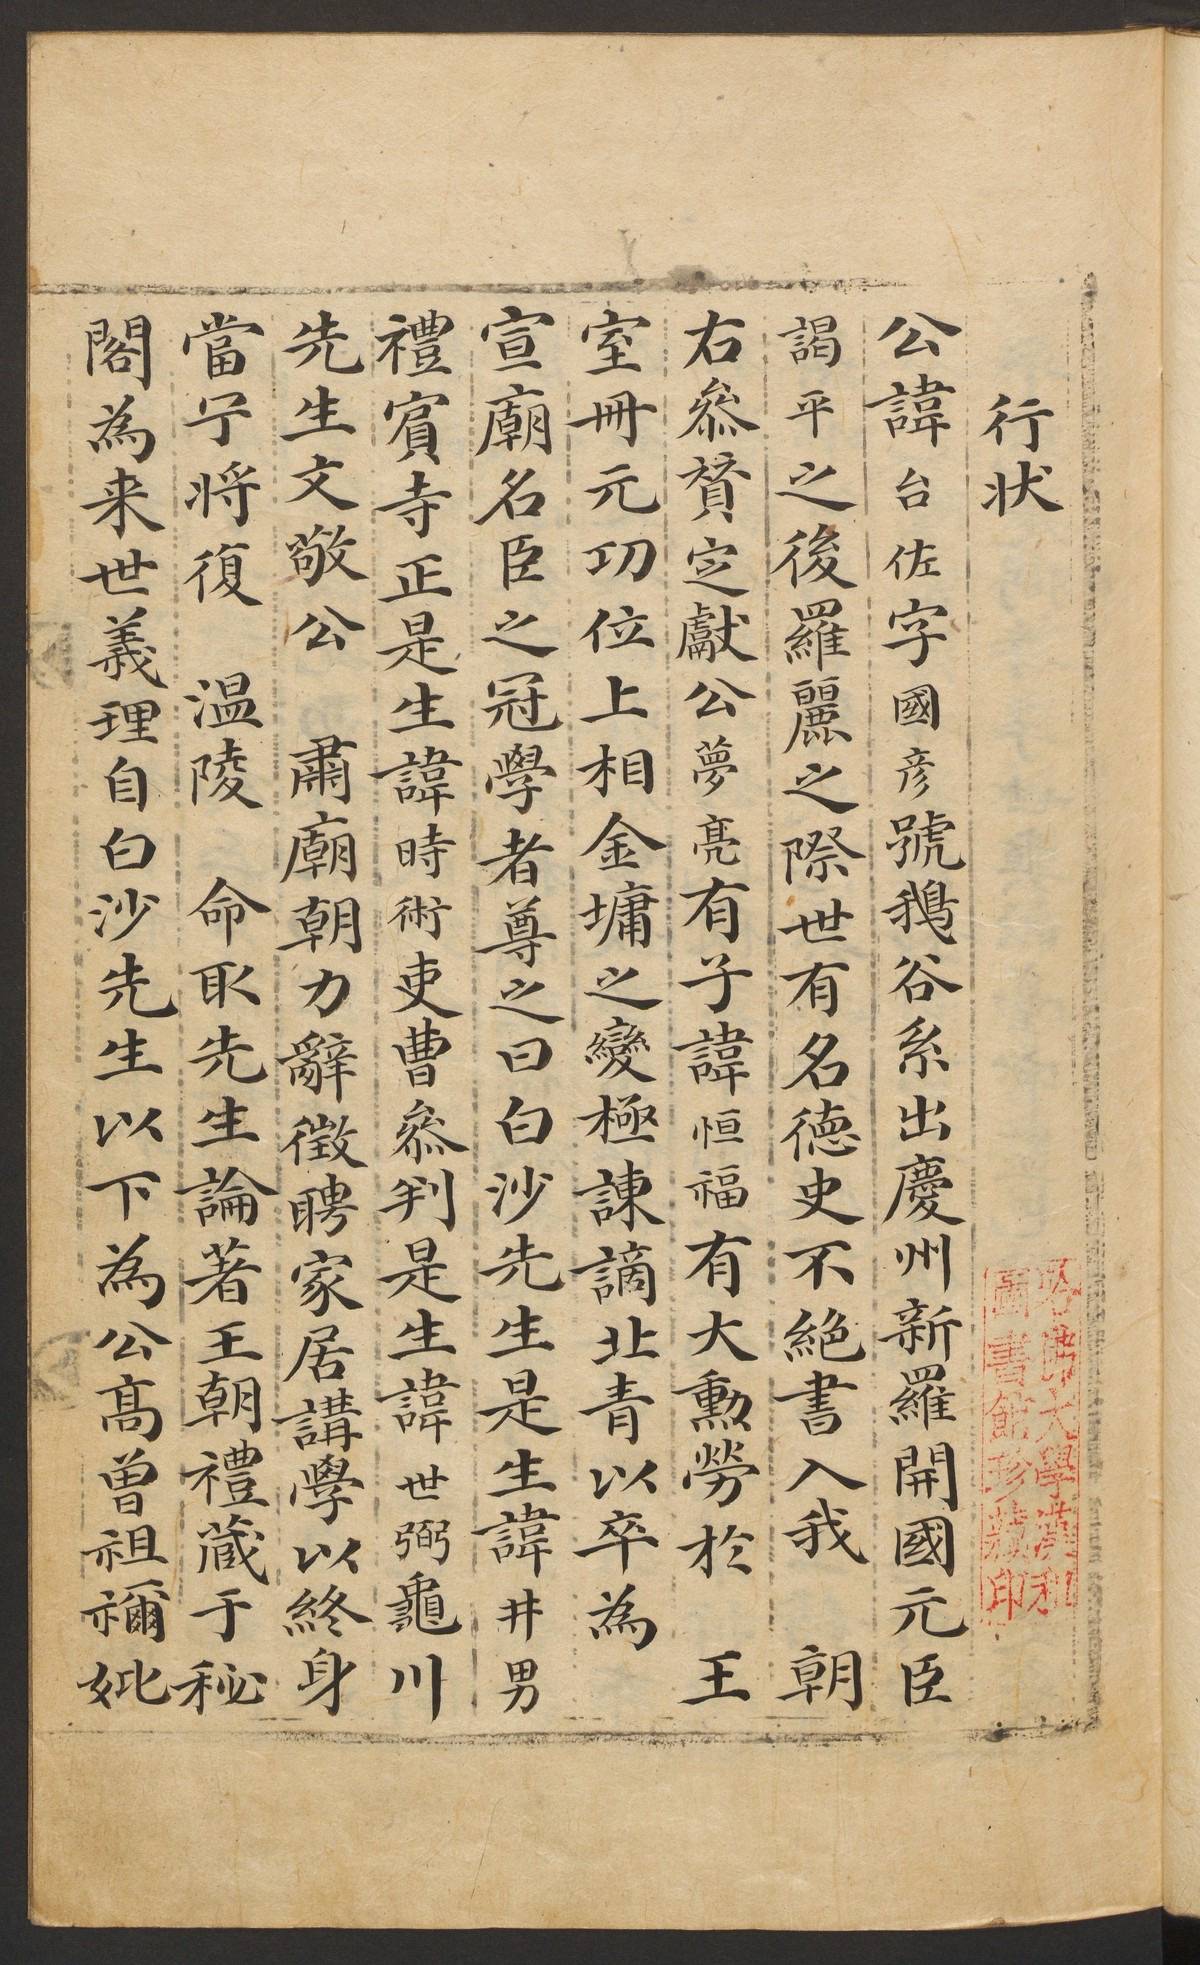 行状
公諱台佐字國彦號鵝谷系出慶州新羅開國元臣
謁平之後羅麗之際世有名德史不絶書入我 朝
右叅賛定獻公夢亮有子諱恒福有大勳勞於 王
室冊元功位上相金墉之變極諫謫北青以卒為
宣廟名臣之冠學者尊之曰白沙先生是生諱井男
禮賓寺正是生諱時術吏曹叅判是生諱世弼龜川
先生文敬公 肅廟朝力辭徵聘家居講學以終身
當宁将復 温陵 命取先生論著王朝禮蔵于秘
閣為来世義理自白沙先生以下為公髙曾祖禰妣
哈佛大學漢和
圖書館珍藏印